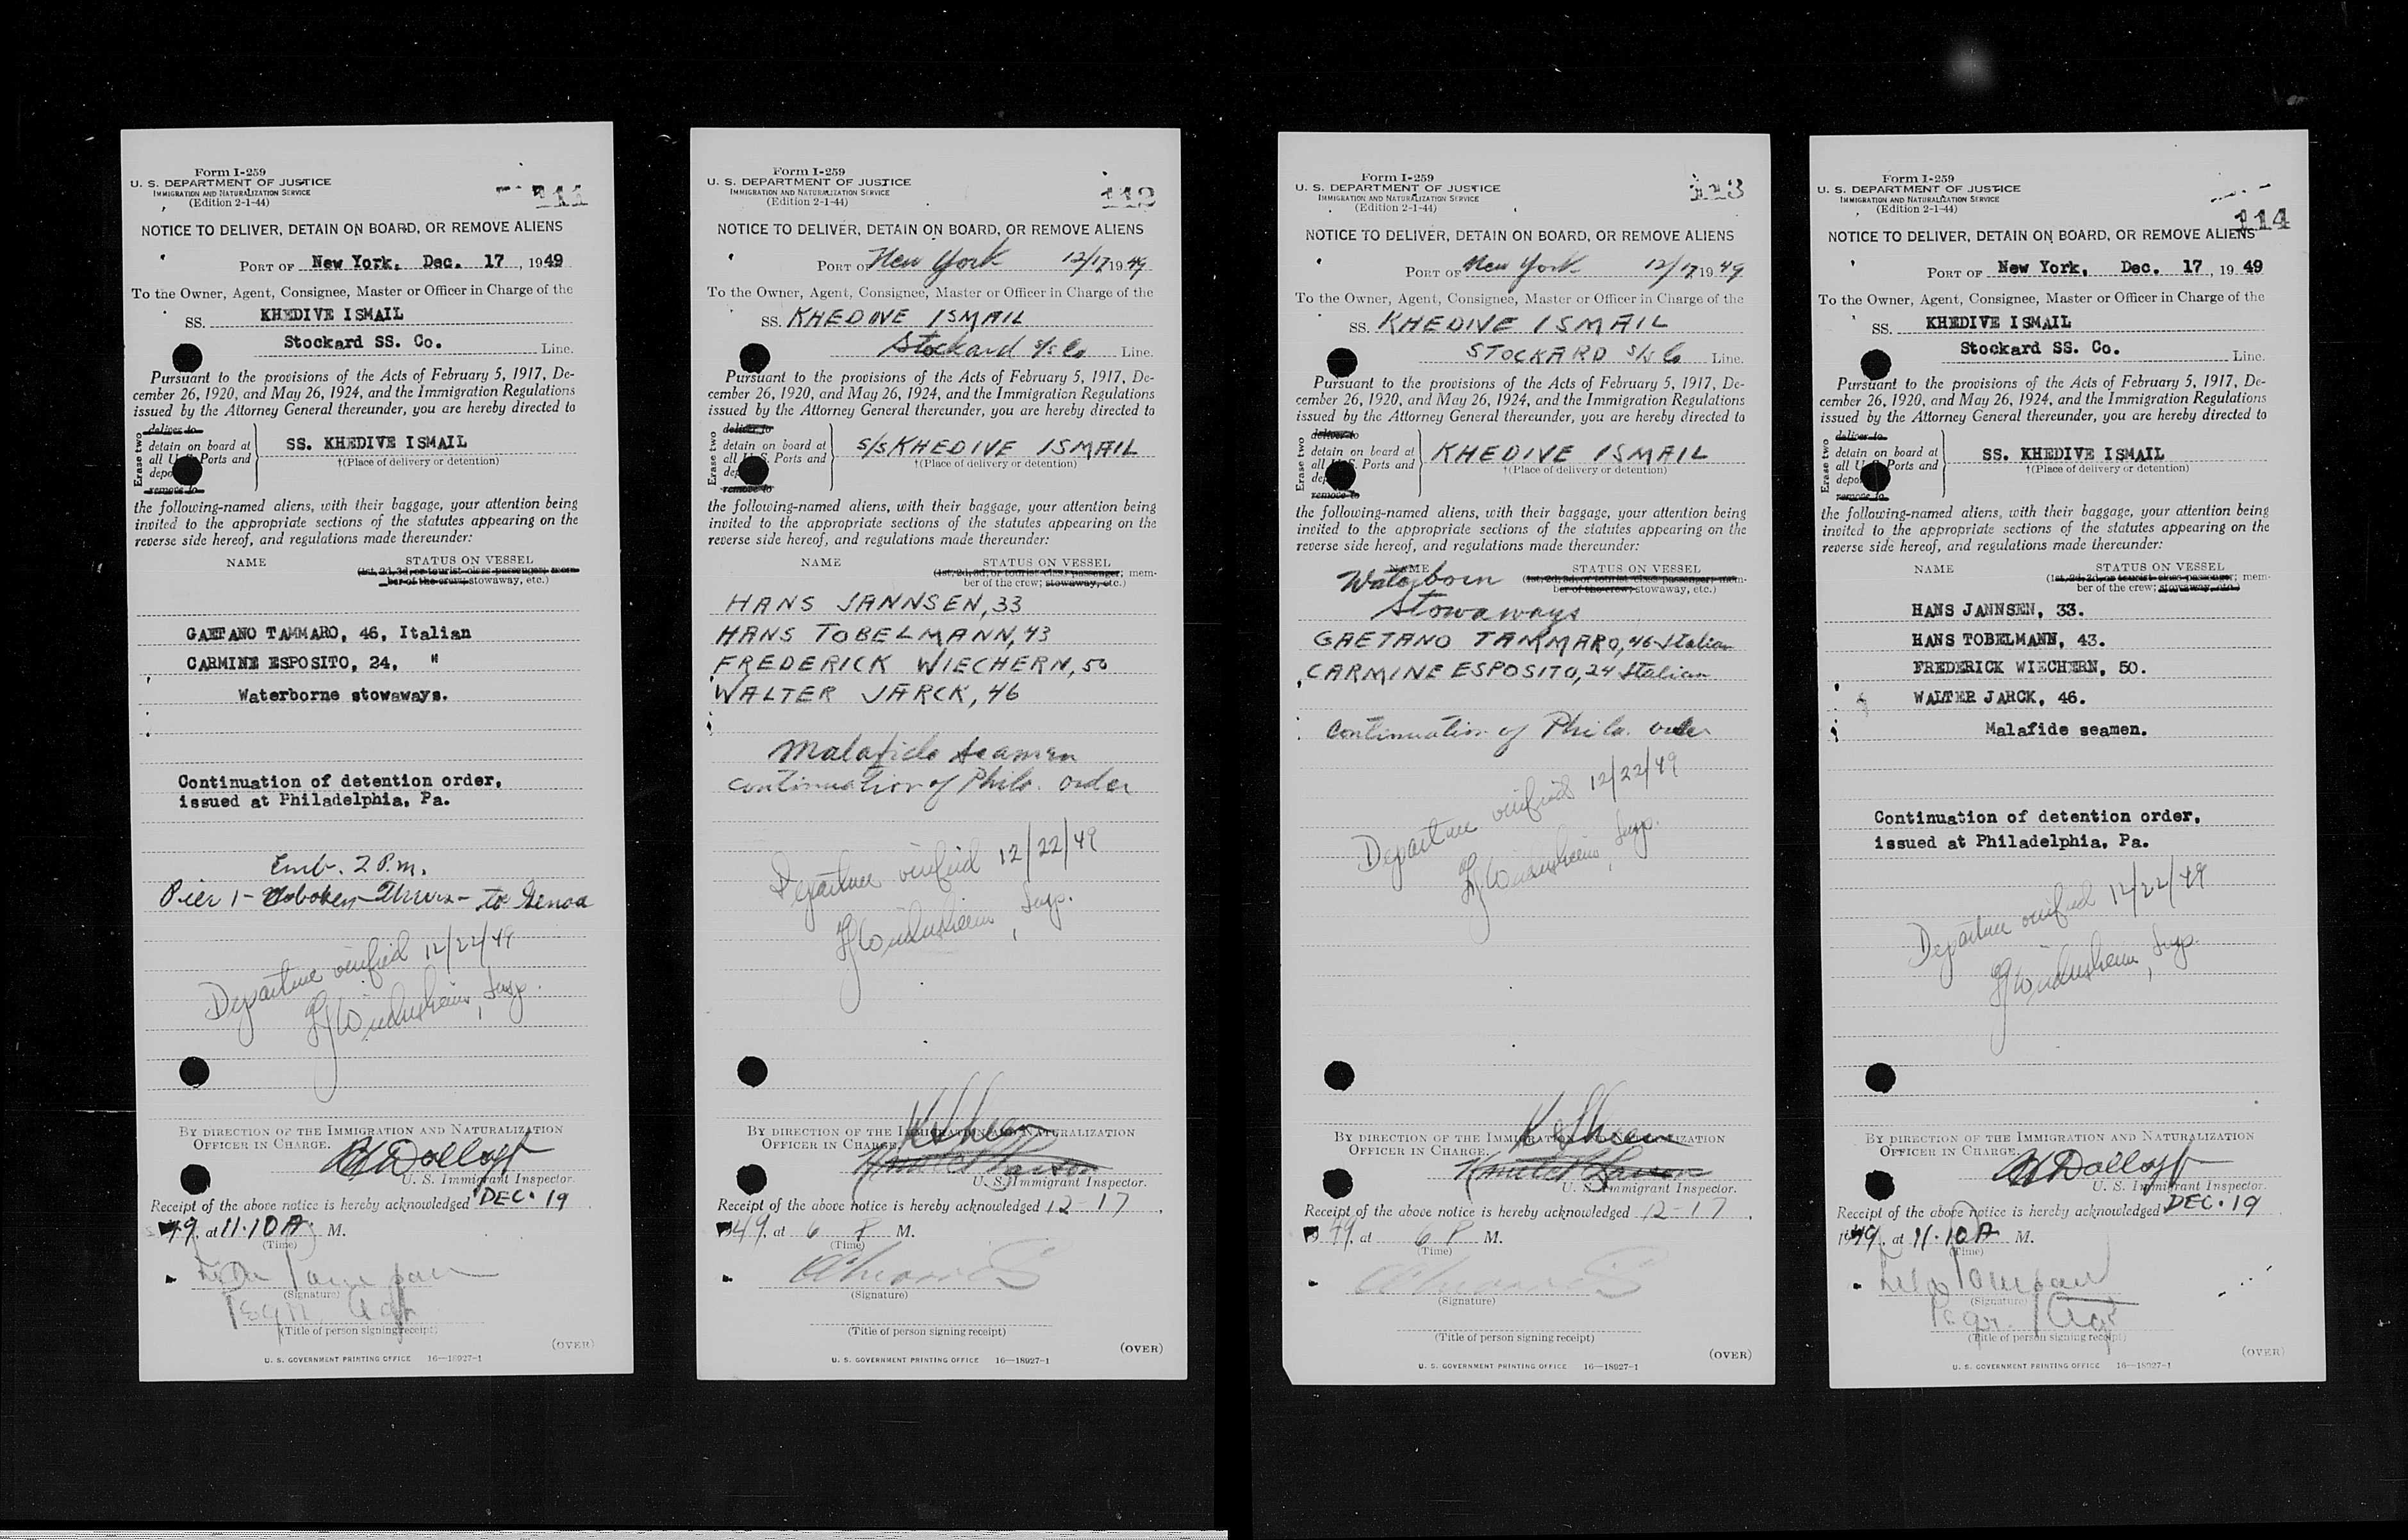 Form I-259
U. S. DEPARTMENT OF JUSTICE
IMMIGRATION AND NATURALIZATION SERVICE
(Edition 2-1-44)
111
NOTICE TO DELIVER, DETAIN ON BOARD, OR REMOVE ALIENS
PORT OF New York, Dec. 17, 1949
To the Owner, Agent, Consignee, Master or Officer in Charge of the
SS. KHEDIVE ISMAIL
Stockard SS. Co. Line.
Pursuant to the provisions of the Acts of February 5, 1917, De-
cember 26, 1920, and May 26, 1924, and the Immigration Regulations
issued by the Attorney General thereunder, you are hereby directed to
Erase two
deliver to
detain on board at
all U. Ports and
depo
remove to
SS. KHEDIVE ISMAIL
†(Place of delivery or detention)
the following-named aliens, with their baggage, your attention being
invited to the appropriate sections of the statutes appearing on the
reverse side hereof, and regulations made thereunder:
NAME STATUS ON VESSEL
(1st, 2d, 3d, or tourist class passenger; mem-
ber of the crew; stowaway, etc.)
GAETANO TAMMARO, 46, Italian
CARMINE ESPOSITO, 24, "
Waterborne stowaways.
Continuation of detention order,
issued at Philadelphia, Pa.
Emb. 2 P.m.
Pier 1 - Hoboken - Thurs - to Genoa
Departure verified 12/22/49
Insp.
BY DIRECTION OF THE IMMIGRATION AND NATURALIZATION
OFFICER IN CHARGE.
U. S. Immigrant Inspector.
Receipt of the above notice is hereby acknowledged DEC. 19
49, at 11.10 A. M.
(Time)
(Signature)
(Title of person signing receipt)
(OVER)
U. S. GOVERNMENT PRINTING OFFICE 16—18927-1
Form I-259
U. S. DEPARTMENT OF JUSTICE
IMMIGRATION AND NATURALIZATION SERVICE
(Edition 2-1-44)
112
NOTICE TO DELIVER, DETAIN ON BOARD, OR REMOVE ALIENS
PORT OF New York 12/17 1949
To the Owner, Agent, Consignee, Master or Officer in Charge of the
SS. KHEDIVE ISMAIL
Stockard S/S Co Line.
Pursuant to the provisions of the Acts of February 5, 1917, De-
cember 26, 1920, and May 26, 1924, and the Immigration Regulations
issued by the Attorney General thereunder, you are hereby directed to
Erase two
deliver to
detain on board at
all S. Ports and
dep
remove to
S/S KHEDIVE ISMAIL
†(Place of delivery or detention)
the following-named aliens, with their baggage, your attention being
invited to the appropriate sections of the statutes appearing on the
reverse side hereof, and regulations made thereunder:
NAME STATUS ON VESSEL
(1st, 2d, 3d, or tourist class passenger; mem-
ber of the crew; stowaway, etc.)
HANS JANNSEN, 33
HANS TOBELMANN, 43
FREDERICK WIECHERN, 50
WALTER JARCK, 46
Malafide seamen
Continuation of Phila. order
Departure verified 12/22/49
Insp.
BY DIRECTION OF THE IMMIGRATION AND NATURALIZATION
OFFICER IN CHARGE.
U. S. Immigrant Inspector.
Receipt of the above notice is hereby acknowledged 12-17,
1949, at 6 P M.
(Time)
(Signature)
(Title of person signing receipt)
(OVER)
U. S. GOVERNMENT PRINTING OFFICE 16—18927-1
Form I-259
U. S. DEPARTMENT OF JUSTICE
IMMIGRATION AND NATURALIZATION SERVICE
(Edition 2-1-44)
113
NOTICE TO DELIVER, DETAIN ON BOARD, OR REMOVE ALIENS
PORT OF New York 12/17 1949
To the Owner, Agent, Consignee, Master or Officer in Charge of the
SS. KHEDIVE ISMAIL
STOCKARD S/S Co Line.
Pursuant to the provisions of the Acts of February 5, 1917, De-
cember 26, 1920, and May 26, 1924, and the Immigration Regulations
issued by the Attorney General thereunder, you are hereby directed to
Erase two
deliver to
detain on board at
all S. Ports and
dep
remove to
KHEDIVE ISMAIL
†(Place of delivery or detention)
the following-named aliens, with their baggage, your attention being
invited to the appropriate sections of the statutes appearing on the
reverse side hereof, and regulations made thereunder:
NAME STATUS ON VESSEL
(1st, 2d, 3d, or tourist class passenger; mem-
ber of the crew; stowaway, etc.)
Waterborn
Stowaways
GAETANO TAMMARO, 46 Italian
CARMINE ESPOSITO, 24 Italian
Continuation of Phila. order
Departure verified 12/22/49
Insp.
BY DIRECTION OF THE IMMIGRATION AND NATURALIZATION
OFFICER IN CHARGE.
U. S. Immigrant Inspector.
Receipt of the above notice is hereby acknowledged 12-17,
1949, at 6 P M.
(Time)
(Signature)
(Title of person signing receipt)
(OVER)
U. S. GOVERNMENT PRINTING OFFICE 16—18927-1
Form I-259
U. S. DEPARTMENT OF JUSTICE
IMMIGRATION AND NATURALIZATION SERVICE
(Edition 2-1-44)
114
NOTICE TO DELIVER, DETAIN ON BOARD, OR REMOVE ALIENS
PORT OF New York, Dec. 17, 1949
To the Owner, Agent, Consignee, Master or Officer in Charge of the
SS. KHEDIVE ISMAIL
Stockard SS. Co. Line.
Pursuant to the provisions of the Acts of February 5, 1917, De-
cember 26, 1920, and May 26, 1924, and the Immigration Regulations
issued by the Attorney General thereunder, you are hereby directed to
Erase two
deliver to
detain on board at
all U. Ports and
depo
remove to
SS. KHEDIVE ISMAIL
†(Place of delivery or detention)
the following-named aliens, with their baggage, your attention being
invited to the appropriate sections of the statutes appearing on the
reverse side hereof, and regulations made thereunder:
NAME STATUS ON VESSEL
(1st, 2d, 3d, or tourist class passenger; mem-
ber of the crew; stowaway, etc.)
HANS JANNSEN, 33.
HANS TOBELMANN, 43.
FREDERICK WIECHERN, 50.
WALTER JARCK, 46.
Malafide seamen.
Continuation of detention order,
issued at Philadelphia, Pa.
Departure verified 12/22/49
Insp.
BY DIRECTION OF THE IMMIGRATION AND NATURALIZATION
OFFICER IN CHARGE.
U. S. Immigrant Inspector.
Receipt of the above notice is hereby acknowledged DEC. 19
1949, at 11.10 A. M.
(Time)
(Signature)
(Title of person signing receipt)
(OVER)
U. S. GOVERNMENT PRINTING OFFICE 16—18927-1